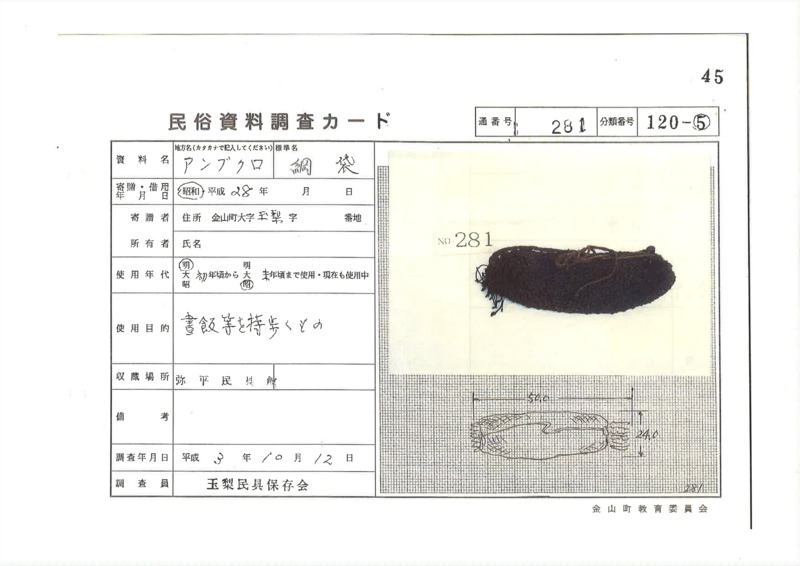 45
民俗資料調査カード
通番号 281 分類番号 120-⑤
資料名 地方名(カタカナで記入してください) アンブクロ 標準名 網袋
寄贈・借用年月日 昭和・平成 28年 月 日
寄贈者 住所 金山町大字玉梨字 番地
所有者 氏名
使用年代 明大昭 初年頃から 明大昭 末年頃まで使用・現在も使用中
使用目的 晝飯等を持歩くもの
収蔵場所 弥平民具館
備考
調査年月日 平成 3年 10月 12日
調査員 玉梨民具保存会
NO 281
50.0
24.0
281
金山町教育委員会